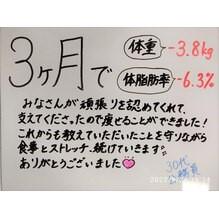 3ヶ月で
体重 -3.8kg
体脂肪率 -6.3%
みなさんが頑張りを認めてくれて、
支えてくださったので痩せることができました!
これからも教えていただいたことを守りながら
食事とストレッチ、続けていきます。
ありがとうございました
30代